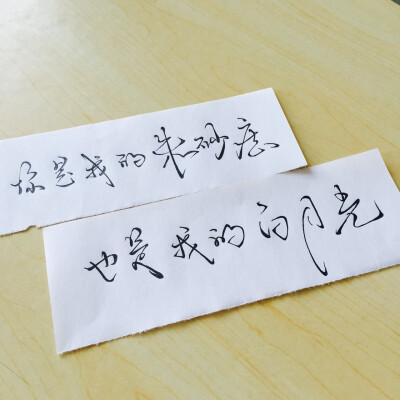 你是我的朱砂痣
也是我的白月光